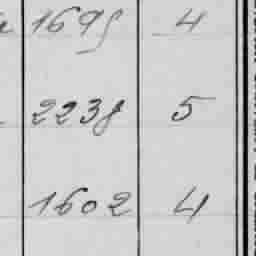 1698 4
2238 5
1602 4